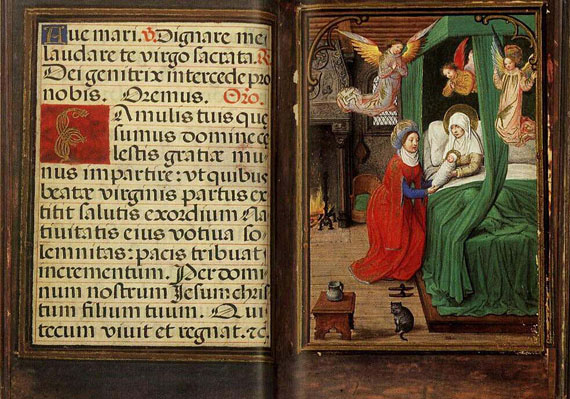 Aue mari. V Dignare me
laudare te virgo sacrata. R
Dei genitrix intercede pro
nobis. Oremus. Oro.
FAmulis tuis que
sumus domine ce
lestis gratiæ mu
nus impartire: vt quibus
beatæ virginis partus ex
titit salutis exordium Na
tiuitatis eius votiua so
lemnitas: pacis tribuat
incrementum. Per domi
num nostrum Jesum chris
tum filium tuum. Qui
tecum viuit et regnat. &c